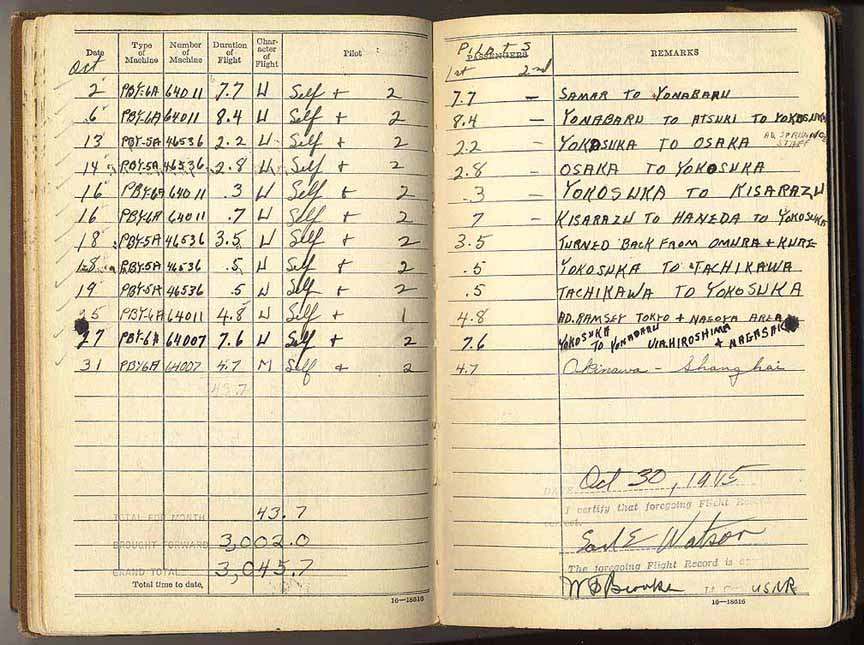 Date Type of Machine Number of Machine Duration of Flight Character of Flight Pilot
Oct
2 PBY-6A 64011 7.7 U Self + 2
6 PBY-6A 64011 8.4 U Self + 2
13 PBY-5A 46536 2.2 U Self + 2
14 PBY-5A 46536 2.8 U Self + 2
16 PBY-6A 64011 .3 U Self + 2
16 PBY-6A 64011 .7 U Self + 2
18 PBY-5A 46536 3.5 U Self + 2
18 PBY-5A 46536 .5 U Self + 2
19 PBY-5A 46536 .5 U Self + 2
25 PBY-6A 64011 4.8 U Self + 1
27 PBY-6A 64007 7.6 U Self + 2
31 PBY6A 64007 4.7 M Self + 2
43.7
TOTAL FOR MONTH 43.7
BROUGHT FORWARD 3,002.0
GRAND TOTAL 3,045.7
Total time to date,
16—18616
Pilots
PASSENGERS REMARKS
1st 2nd
7.7 – SAMAR TO YONABARU
8.4 – YONABARU TO ATSUKI TO YOKOSUKA
2.2 – YOKOSUKA TO OSAKA STAFF
2.8 – OSAKA TO YOKOSUKA
.3 – YOKOSUKA TO KISARAZU
7 – KISARAZU TO HANEDA TO YOKOSUKA
3.5 TURNED BACK FROM OMURA + KURE
.5 YOKOSUKA TO TACHIKAWA
.5 TACHIKAWA TO YOKOSUKA
4.8 AD. RAMSEY TOKYO + NAGOYA AREA
7.6 YOKOSUKA TO YONABARU VIA HIROSHIMA + NAGASAKI
4.7 Okinawa – Shanghai
DATE Oct 30, 1945
I certify that foregoing Flight
correct.
Earl E Watson
The foregoing Flight Record is
W D Brooke USNR
16—18616